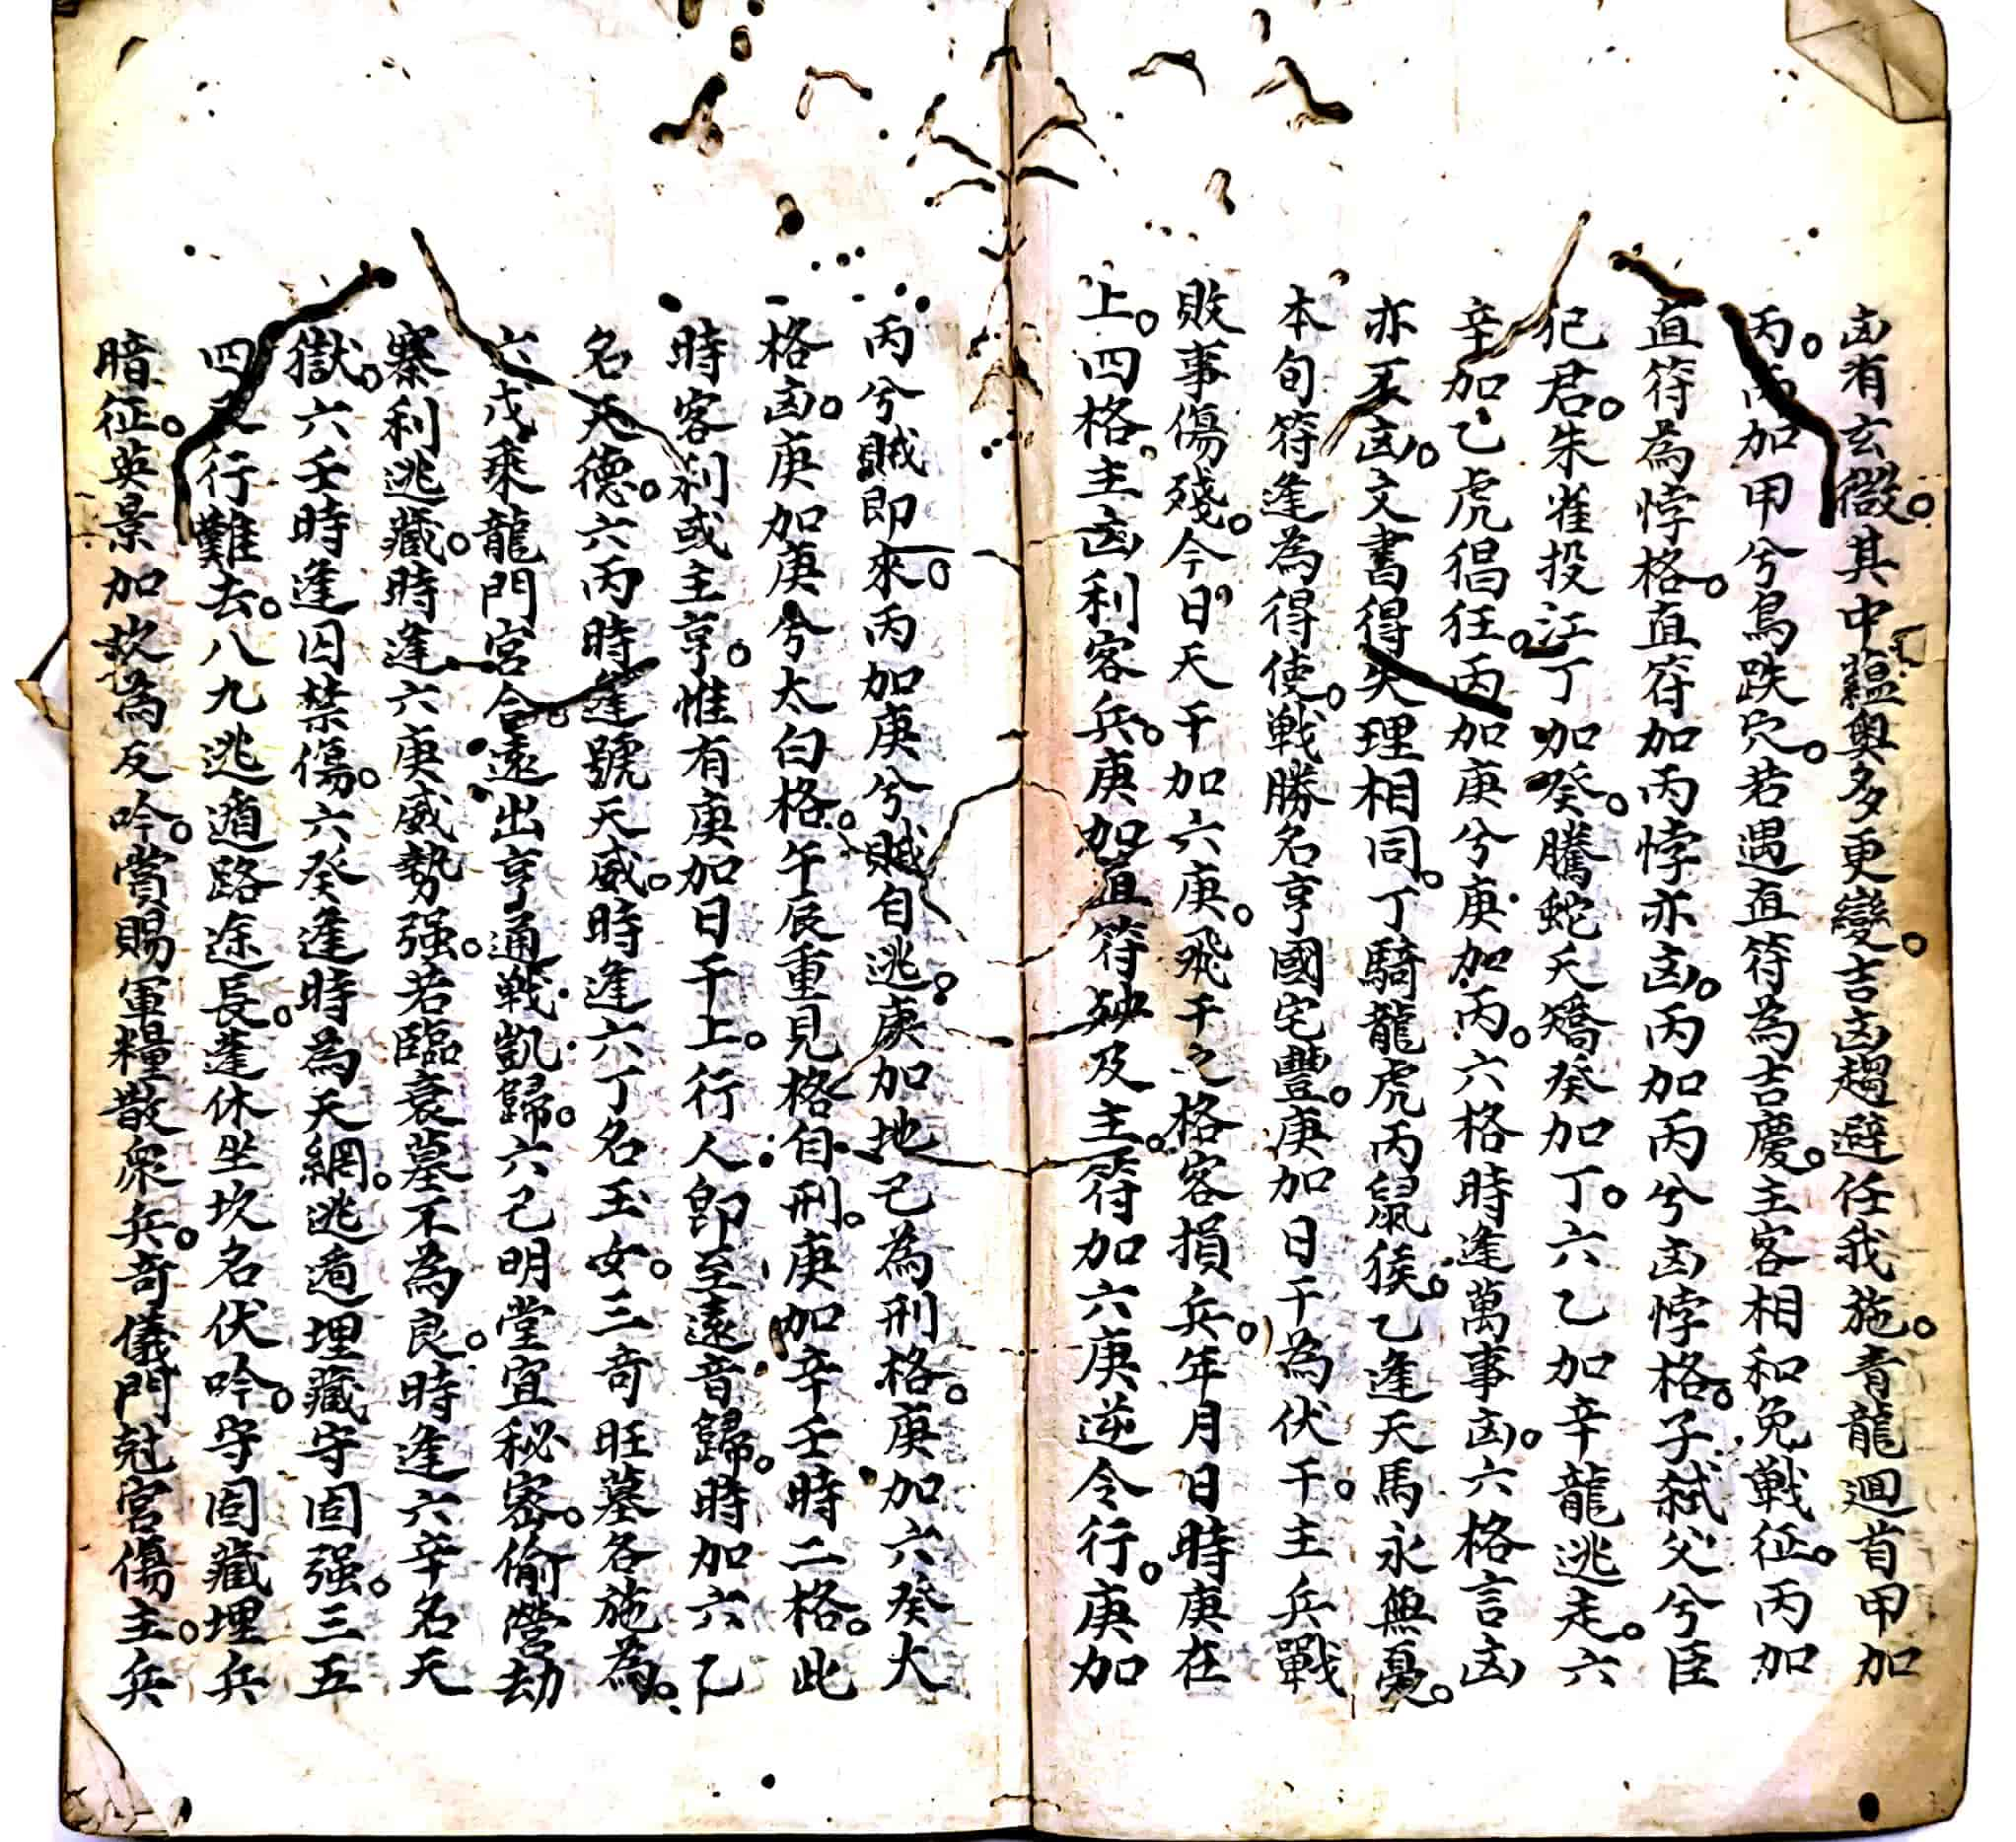 凶有玄微。其中蘊奧多更變。吉凶趨避任我施。青龍迴首甲加
丙。丙加甲兮鳥跌穴。若遇直符為吉慶。主客相和免戦征。丙加
直符為悖格。直符加丙悖亦凶。丙加丙兮凶悖格。子弒父兮臣
犯君。朱雀投江丁加癸。騰蛇夭矯癸加丁。六乙加辛龍逃走。六
辛加乙虎猖狂。丙加庚兮庚加丙。六格時逢萬事凶。六格言凶
亦不凶。文書得失理相同。丁騎龍虎丙鼠猴。乙逢天馬永無憂。
本旬符逢為得使。戦勝名亨國宅豐。庚加日干為伏干。主兵戰
敗事傷殘。今日天干加六庚。飛干之格客損兵。年月日時庚在
上。四格。主凶利客兵。庚加直符殃及主。符加六庚逆令行。庚加
丙兮賊即來。丙加庚兮賊自逃。庚加地己為刑格。庚加六癸大
格凶。庚加庚兮太白格。午辰重見格自刑。庚加辛壬時二格。此
時客利或主亨。惟有庚加日干上。行人即至遠音歸。時加六乙
名天德。六丙時逢號天威。時逢六丁名玉女。三奇旺墓各施為。
六戊乘龍門宮合。遠出亨通戦凱歸。六己明堂宜秘密。偷營劫
寨利逃藏。時逢六庚威勢强。若臨衰墓不為良。時逢六辛名天
獄。六壬時逢囚禁傷。六癸逢時為天網。逃遁埋藏守固强。三五
四足行難去。八九逃遁路途長。蓬休坐坎名伏吟。守固藏埋兵
暗征。英景加坎為反吟。賞賜軍糧散衆兵。奇儀門尅宮傷主。主兵